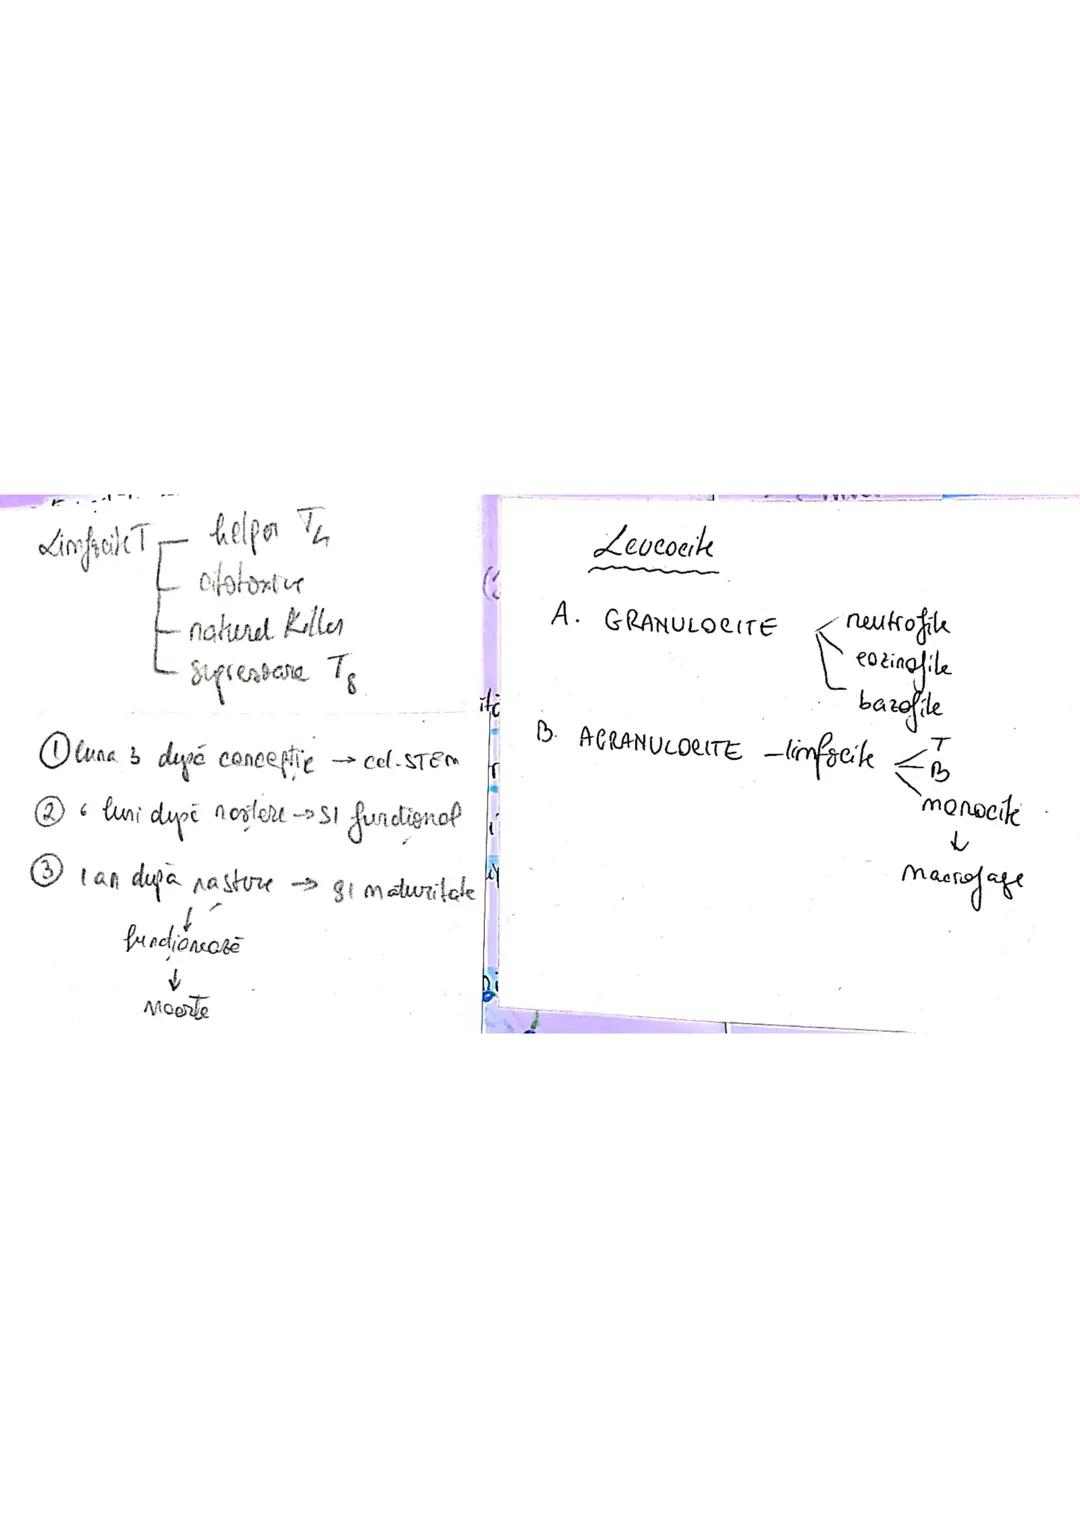 Limfocite T
helper T4
citotoxice
natural Killer
supresoare T8
① luna 3 după concepție → cel. STEM
② 6 luni după naștere → SI funcțional
③ 1 an după naștere → SI maturitate
↓
funcționează
↓
Moarte
Leucocite
A. GRANULOCITE
neutrofile
eozinofile
bazofile
B. AGRANULOCITE - limfocite
T
B
monocite
↓
macrofage